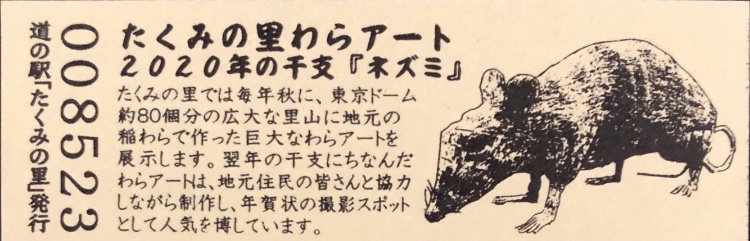 道の駅「たくみの里」発行
008523
たくみの里わらアート
2020年の干支『ネズミ』
たくみの里では毎年秋に、東京ドーム
約80個分の広大な里山に地元の
稲わらで作った巨大なわらアートを
展示します。翌年の干支にちなんだ
わらアートは、地元住民の皆さんと協力
しながら制作し、年賀状の撮影スポット
として人気を博しています。